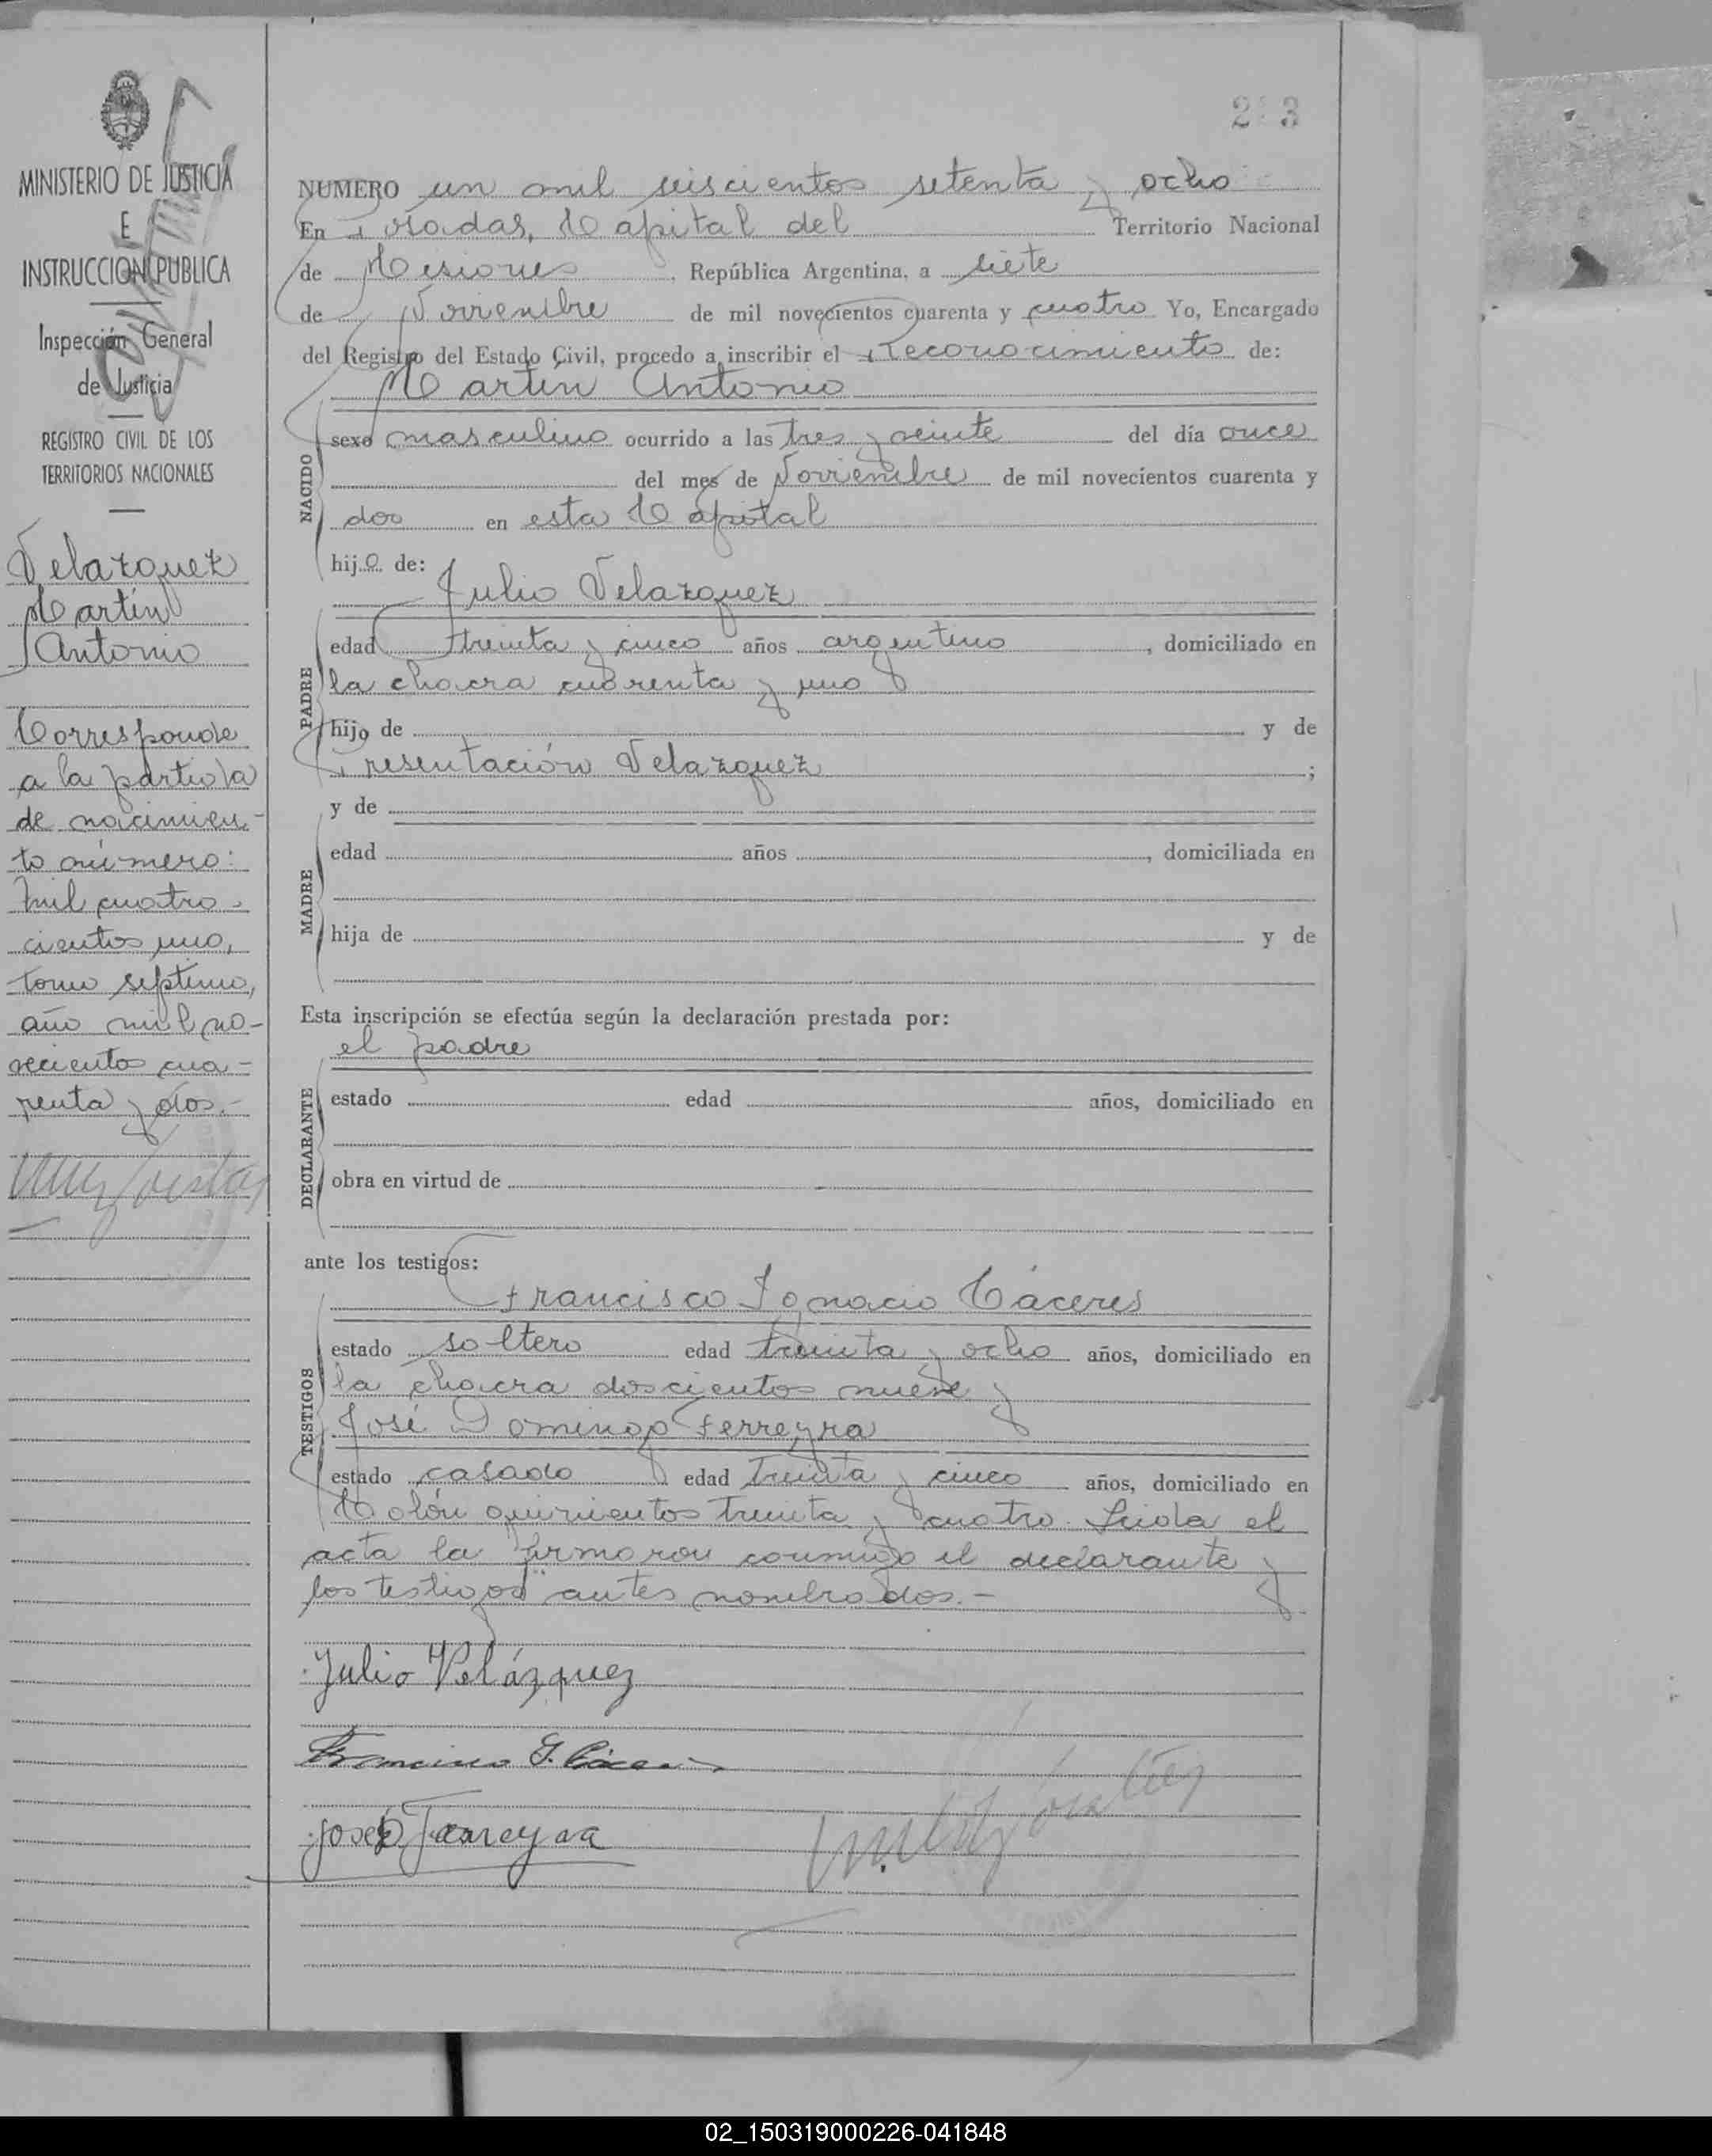 MINISTERIO DE JUSTICIA
E
INSTRUCCION PUBLICA
Inspección General
de Justicia
REGISTRO CIVIL DE LOS
TERRITORIOS NACIONALES
Velazquez
Martín
Antonio
Corresponde
a la partida
de nacimien-
to número:
mil cuatro-
cientos uno,
tomo septimo,
año mil no-
vecientos cua-
renta y dos.-
NUMERO un mil seiscientos setenta y ocho
En Posadas, Capital del Territorio Nacional
de Misiones, República Argentina, a siete
de Noviembre de mil novecientos cuarenta y cuatro Yo, Encargado
del Registro del Estado Civil, procedo a inscribir el Reconocimiento de:
Martín Antonio
NACIDO
sexo masculino ocurrido a las tres y veinte del día once
del mes de Noviembre de mil novecientos cuarenta y
dos en esta Capital
hijo de:
Julio Velazquez
PADRE
edad treinta y cinco años argentino, domiciliado en
la chacra cuarenta y uno
hijo de y de
Presentación Velazquez;
y de
MADRE
edad años, domiciliada en
hija de y de
Esta inscripción se efectúa según la declaración prestada por:
el padre
DECLARANTE
estado edad años, domiciliado en
obra en virtud de
ante los testigos:
Francisco Ignacio Cáceres
TESTIGOS
estado soltero edad treinta y ocho años, domiciliado en
la chacra doscientos nueve y
José Domingo Ferreyra
estado casado edad treinta y cinco años, domiciliado en
Colón quinientos treinta y cuatro. Leida el
acta la firmaron conmigo el declarante y
los testigos antes nombrados.-
Julio Velázquez
Francisco I. Cáceres
José D. Ferreyra
02_150319000226-041848